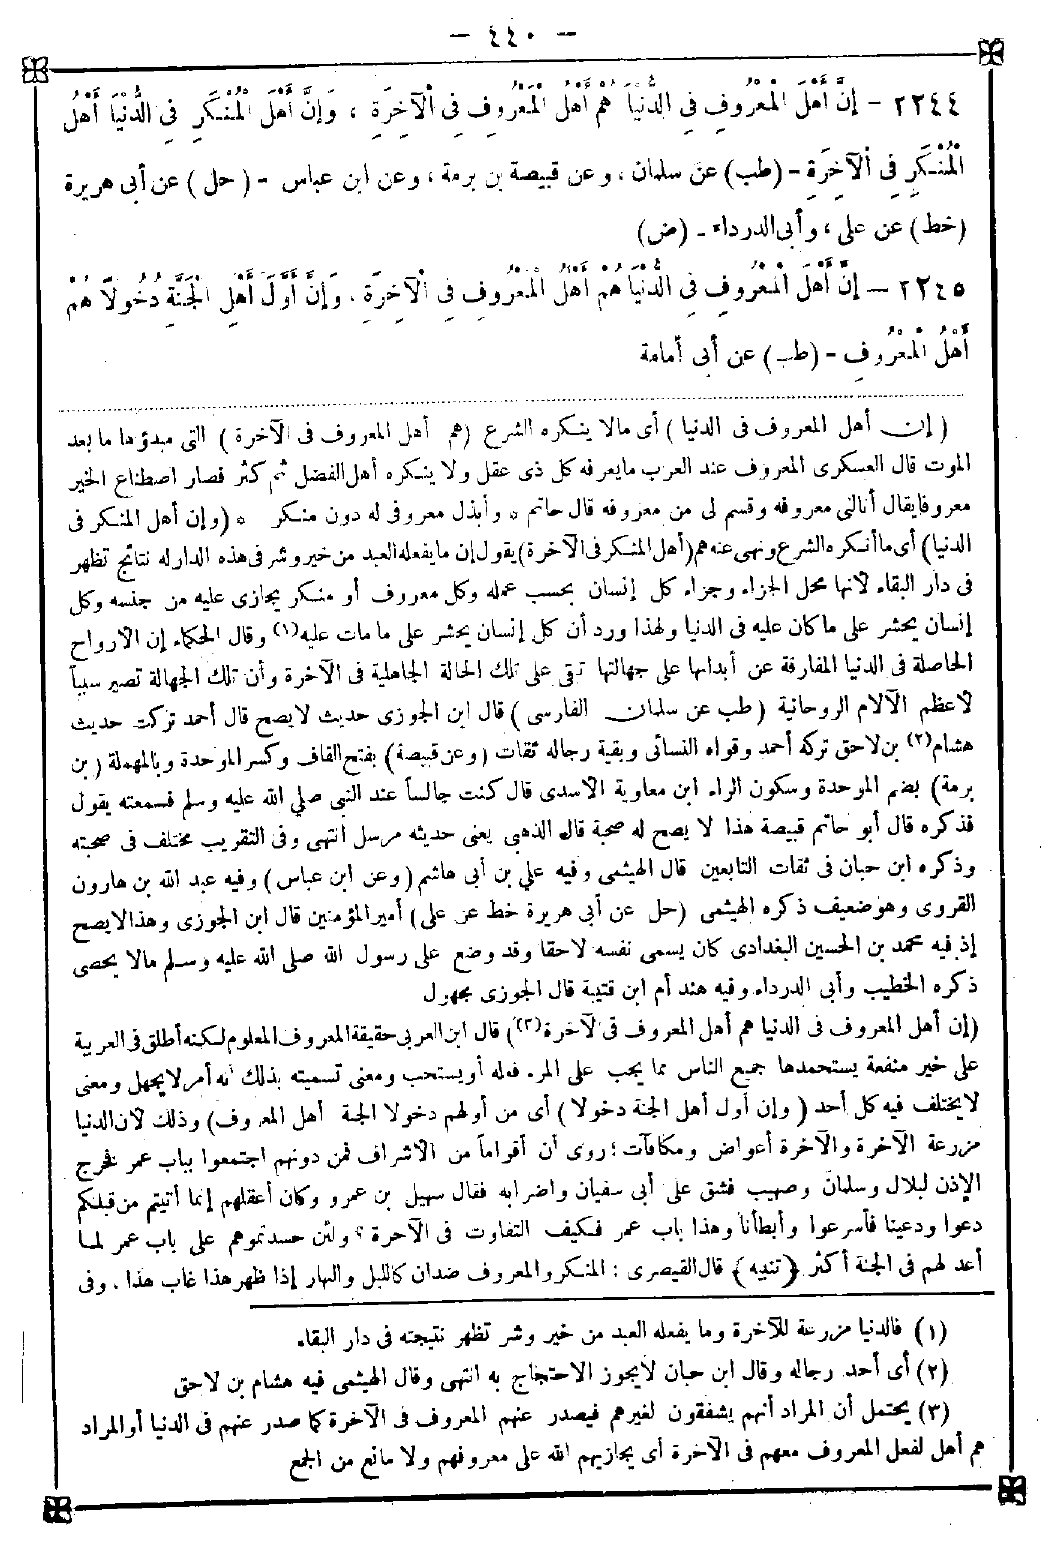 - ٤٤٠ -
٢٢٤٤ - إِنَّ أَهْلَ الْمَعْرُوفِ فِي الدُّنْيَا هُمْ أَهْلُ الْمَعْرُوفِ فِي الْآخِرَةِ ، وَإِنَّ أَهْلَ الْمُنْكَرِ فِي الدُّنْيَا أَهْلُ
الْمُنْكَرِ فِي الْآخِرَةِ - (طب) عن سلمان ، وعن قبيصة بن برمة ، وعن ابن عباس - (حل) عن أبى هريرة
(خط) عن على ، وأبى الدرداء - (ض)
٢٢٤٥ - إِنَّ أَهْلَ الْمَعْرُوفِ فِي الدُّنْيَا هُمْ أَهْلُ الْمَعْرُوفِ فِي الْآخِرَةِ ، وَإِنَّ أَوَّلَ أَهْلِ الْجَنَّةِ دُخُولًا هُمْ
أَهْلُ الْمَعْرُوفِ - (طب) عن أبى أمامة
(إن أهل المعروف فى الدنيا) أى مالا ينكره الشرع (هم أهل المعروف فى الآخرة) التى مبدؤها ما بعد
الموت قال العسكرى المعروف عند العرب مايعرفه كل ذى عقل ولا ينكره أهل الفضل ثم كثر فصار اصطناع الخير
معروفا يقال أنالنى معروفه وقسم لى من معروفه قال حاتم * وأبذل معروفى له دون منكر * (وإن أهل المنكر فى
الدنيا) أى ما أنكره الشرع ونهى عنه هم (أهل المنكر فى الآخرة) يقول إن ما يفعله العبد من خير وشر فى هذه الدار له نتائج تظهر
فى دار البقاء لانها محل الجزاء وجزاء كل إنسان بحسب عمله وكل معروف أو منكر يجازى عليه من جنسه وكل
إنسان يحشر على ما كان عليه فى الدنيا ولهذا ورد أن كل إنسان يحشر على ما مات عليه (١) وقال الحكماء إن الارواح
الحاصلة فى الدنيا المفارقة عن أبدانها على جهالتها تبقى على تلك الحالة الجاهلية فى الآخرة وأن تلك الجهالة تصير سببا
لاعظم الآلام الروحانية (طب عن سلمان الفارسى) قال ابن الجوزى حديث لا يصح قال أحمد تركت حديث
هشام (٢) بن لاحق تركه أحمد وقواه النسائى وبقية رجاله ثقات (وعن قبيصة) بفتح القاف وكسر الموحدة وبالمهملة (بن
برمة) بضم الموحدة وسكون الراء ابن معاوية الاسدى قال كنت جالسا عند النبى صلى الله عليه وسلم فسمعته يقول
فذكره قال أبو حاتم قبيصة هذا لا يصح له صحبة قال الذهبى يعنى حديثه مرسل انتهى وفى التقريب مختلف فى صحبته
وذكره ابن حبان فى ثقات التابعين قال الهيثمى وفيه على بن أبى هاشم (وعن ابن عباس) وفيه عبد الله بن هارون
القروى وهو ضعيف ذكره الهيثمى (حل عن أبى هريرة خط عن على) أمير المؤمنين قال ابن الجوزى وهذا لا يصح
إذ فيه محمد بن الحسين البغدادى كان يسمى نفسه لاحقا وقد وضع على رسول الله صلى الله عليه وسلم مالا يحصى
ذكره الخطيب وأبى الدرداء وفيه هند أم ابن قتيبة قال الجوزى مجهول
(إن أهل المعروف فى الدنيا هم أهل المعروف فى الآخرة (٣)) قال ابن العربى حقيقة المعروف المعلوم لكنه أطلق فى العربية
على خير منفعة يستحمدها جميع الناس مما يجب على المرء فعله أو يستحب ومعنى تسميته بذلك أنه أمر لا يجهل ومعنى
لا يختلف فيه كل أحد (وإن أول أهل الجنة دخولا) أى من أولهم دخولا الجنة أهل المعروف) وذلك لان الدنيا
مزرعة الآخرة والآخرة أعواض ومكافآت ؛ روى أن أقواما من الاشراف فمن دونهم اجتمعوا بباب عمر فخرج
الإذن لبلال وسلمان وصهيب فشق على أبى سفيان واضرابه فقال سهيل بن عمرو وكان أعقلهم إنما أتيتم من قبلكم
دعوا ودعينا فأسرعوا وأبطأنا وهذا باب عمر فكيف التفاوت فى الآخرة ؟ ولئن حسدتموهم على باب عمر لما
أعد لهم فى الجنة أكثر (تنبيه) قال القيصرى : المنكر والمعروف ضدان كالليل والنهار إذا ظهر هذا غاب هذا . وفى
(١) فالدنيا مزرعة للآخرة وما يفعله العبد من خير وشر تظهر نتيجته فى دار البقاء
(٢) أى أحد رجاله وقال ابن حبان لايجوز الاحتجاج به انتهى وقال الهيثمى فيه هشام بن لاحق
(٣) يحتمل أن المراد أنهم يشفقون لغيرهم فيصدر عنهم المعروف فى الآخرة كما صدر عنهم فى الدنيا أو المراد
هم أهل لفعل المعروف معهم فى الآخرة أى يجازيهم الله على معروفهم ولا مانع من الجمع